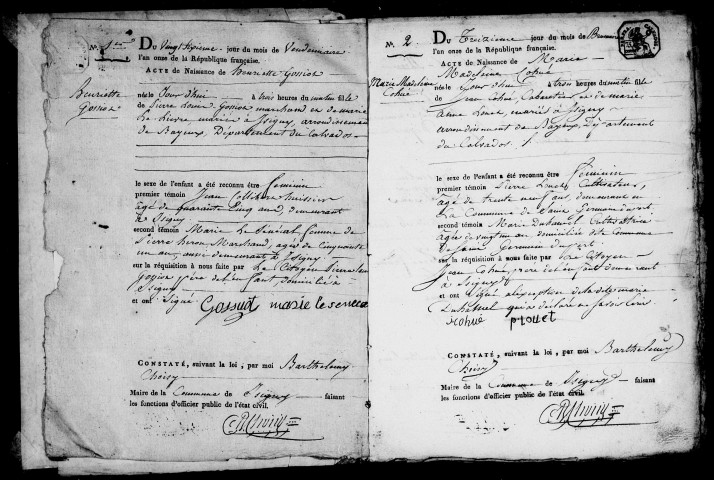 N.° 1er
Du Vingt sixieme jour du mois de Vendemiaire
l'an onze de la République française.
Acte de Naissance de henriette Gossiot
henriette
Gossiot
né le jour d'hui à trois heures du matin fille
de Pierre Gossiot marchand et de marie
Le Sueur mariés à Isigny, arrondissement
de Bayeux, Département du Calvados
le sexe de l'enfant a été reconnu être feminin
premier témoin Jean huissier
âgé de quarante cinq ans, demeurant
à Isigny
second témoin Marie Le Senecal femme de
Pierre heron Marchand, agée de Cinquante
un an, aussi demeurant à Isigny
sur la réquisition à nous faite par Le Citoyen
père de l'enfant, domicilié à
Isigny
et ont Signé Gossiot marie le seneca
Constaté, suivant la loi, par moi Barthelemy
Choisy
Maire de la Commune de Isigny faisant
les fonctions d'officier public de l'état civil.
N.° 2
Du Treizieme jour du mois de Brumaire
l'an onze de la République française.
Acte de Naissance de Marie
Madeleine Cohüe
Marie Madeleine
Cohüe
né le jour d'hui à trois heures du matin fille
de Jean Cohüe, Cabaretier et de marie
anne Louet, mariés à Isigny
arrondissement de Bayeux, Département
du Calvados
le sexe de l'enfant a été reconnu être feminin
premier témoin Pierre Louet Cultivateur,
agé de trente neuf ans, demeurant en
La Commune de Saint Germain
second témoin Marie Cultivatrice
agée de vingt un an domiciliée dite Commune
de Saint Germain
sur la réquisition à nous faite par Le Citoyen
Jean Cohüe, pere de l'enfant demeurant
à Isigny
et ont Signé à l'exception de la dite marie
qui a déclaré ne savoir écrire
jcohue p louet
Constaté, suivant la loi, par moi Barthelemy
Choisy
Maire de la Commune de Isigny faisant
les fonctions d'officier public de l'état civil.